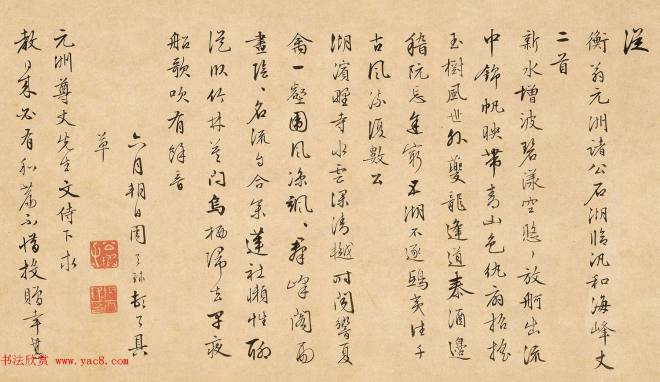 從
衡翁元洲諸公石湖臨汎和海峰丈
二首
新水增波碧漾空悠悠放舸出流
中錦帆映帶青山色紈扇招搖
玉樹風世外夔龍逢道泰酒邊
嵇阮忘途窮五湖不逐鴟夷去千
古風流須數公
湖濱野寺水雲深清樾時聞響夏
禽一壑園風涼颯颯群峰閣雨
畫陰陰名流自合參蓮社懶性聊
從似竹林莫問烏栖歸去早夜
船歌吹有餘音
六月朔日周天球頓首具
草
元洲尊丈先生文侍下求
教日來必有和篇不惜投贈幸甚
书法欣赏 www.yac8.com